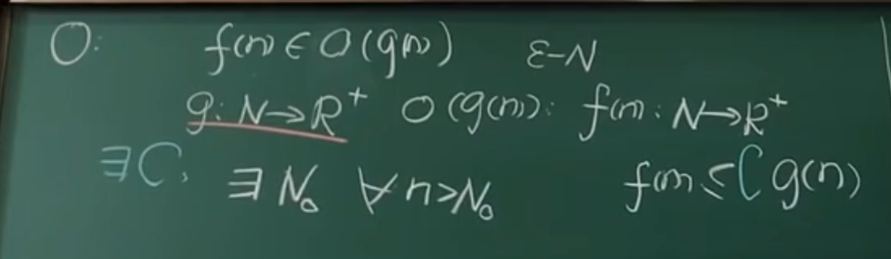 O: f(n) ∈ O(g(n)) ε-N
g: N→R⁺ O(g(n)): f(n): N→R⁺
∃C, ∃N₀ ∀n>N₀ f(n) ≤ C g(n)